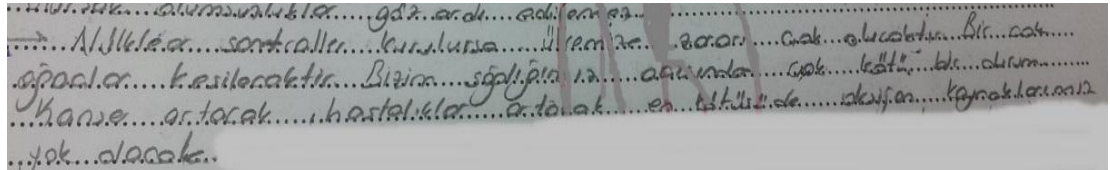 olumsuzluklar göz ardı edilemez
→ Nükleer santraller kurulursa ülkemize zararı çok olucaktır. Bir çok
ağaçlar kesilecektir. Bizim sağlığımız açısından çok kötü bir durum
Kanser artacak, hastalıklar artacak en kötüsü de oksijen kaynaklarımız
yok olacak.